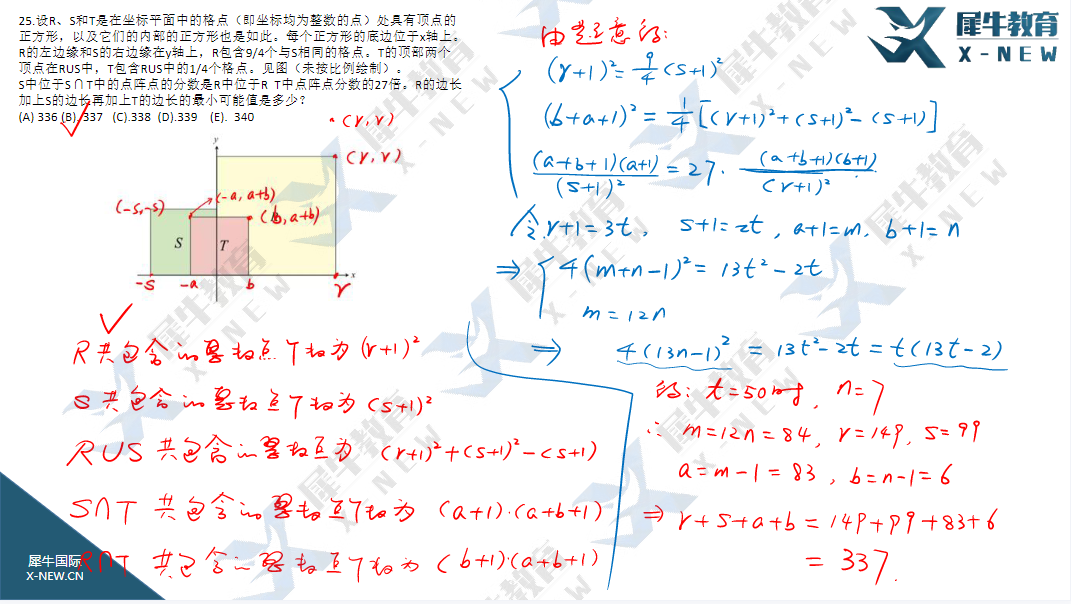 25.设R、S和T是在坐标平面中的格点（即坐标均为整数的点）处具有顶点的
正方形，以及它们的内部的正方形也是如此。每个正方形的底边位于x轴上。
R的左边缘和S的右边缘在y轴上，R包含9/4个与S相同的格点。T的顶部两个
顶点在RUS中，T包含RUS中的1/4个格点。见图（未按比例绘制）。
S中位于S∩T中的点阵点的分数是R中位于R T中点阵点分数的27倍。R的边长
加上S的边长再加上T的边长的最小可能值是多少？
(A) 336 (B). 337 (C).338 (D).339 (E). 340
(r, r)
y
(r, r)
(-a, a+b)
(-s,-s)
(b, a+b)
S
T
x
-s
-a
b
r
R共包含的点个数为(r+1)²
S共包含的点个数为(s+1)²
RUS共包含的点为 (r+1)²+(s+1)²-(s+1)
S∩T 共包含的点个数为 (a+1)·(a+b+1)
R∩T 共包含的点个数为 (b+1)·(a+b+1)
由题意得:
(r+1)²=9/4(s+1)²
(b+a+1)²=1/4[(r+1)²+(s+1)²-(s+1)]
(a+b+1)(a+1)/(s+1)²=27·(a+b+1)(b+1)/(r+1)²
令r+1=3t, s+1=2t, a+1=m, b+1=n
⇒ 4(m+n-1)²=13t²-2t
m=12n
⇒ 4(13n-1)²=13t²-2t=t(13t-2)
得: t=50时, n=7
∴ m=12n=84, r=149, s=99
a=m-1=83, b=n-1=6
⇒ r+s+a+b=149+99+83+6
=337.
犀牛教育
X-NEW
犀牛国际
X-NEW.CN